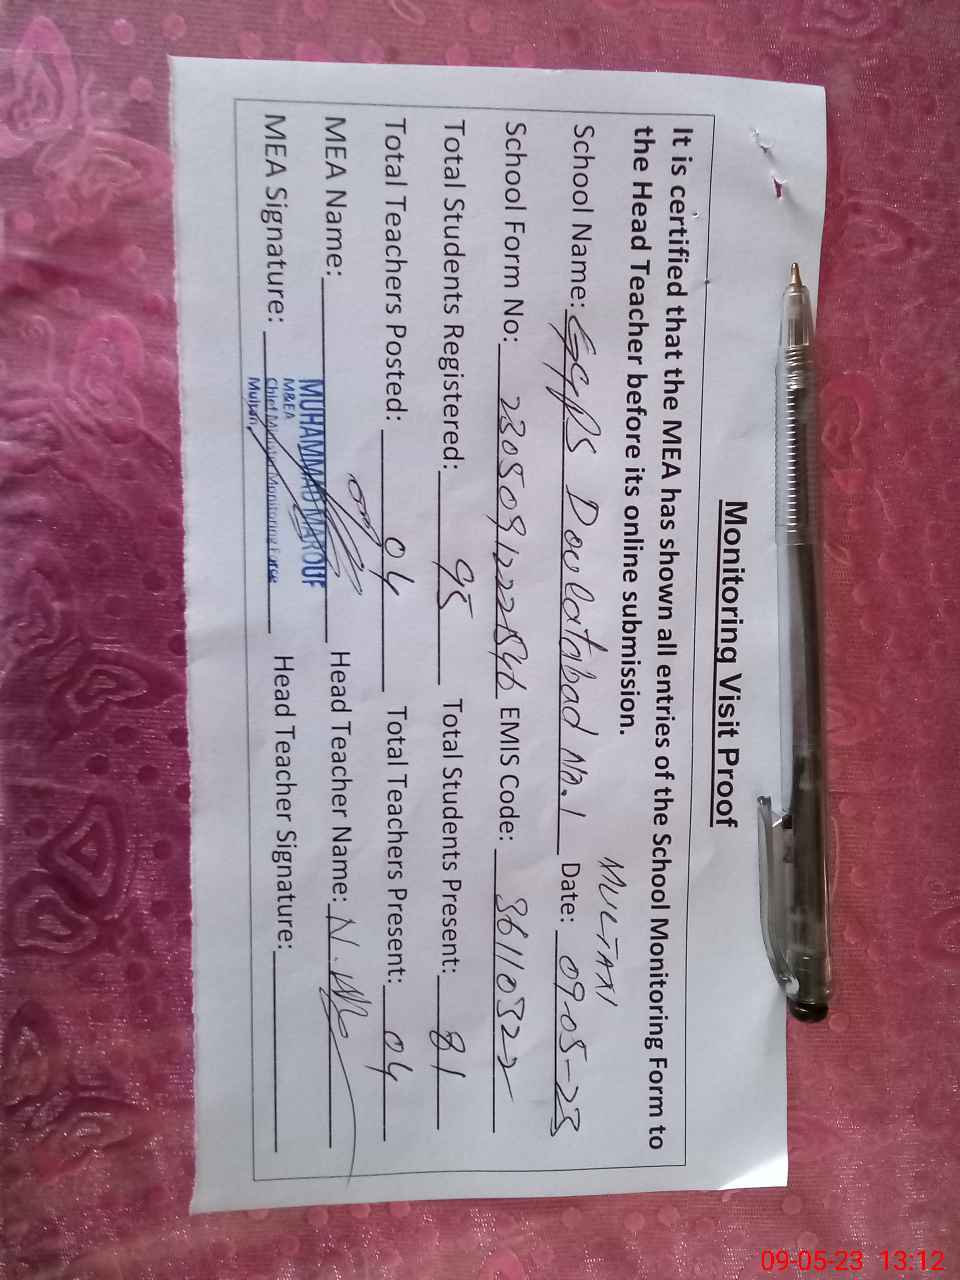 Monitoring Visit Proof
It is certified that the MEA has shown all entries of the School Monitoring Form to
the Head Teacher before its online submission.
MULTAN
School Name: GGPS Doulatabad No.1 Date: 09-05-23
School Form No: EMIS Code: 36110322
Total Students Registered: 95 Total Students Present: 81
Total Teachers Posted: 04 Total Teachers Present: 04
MEA Name: Head Teacher Name:
MUHAMMAD MAROUF
M&EA
MEA Signature: Head Teacher Signature:
Chief Minister Monitoring Force
Multan
09-05-23 13:12